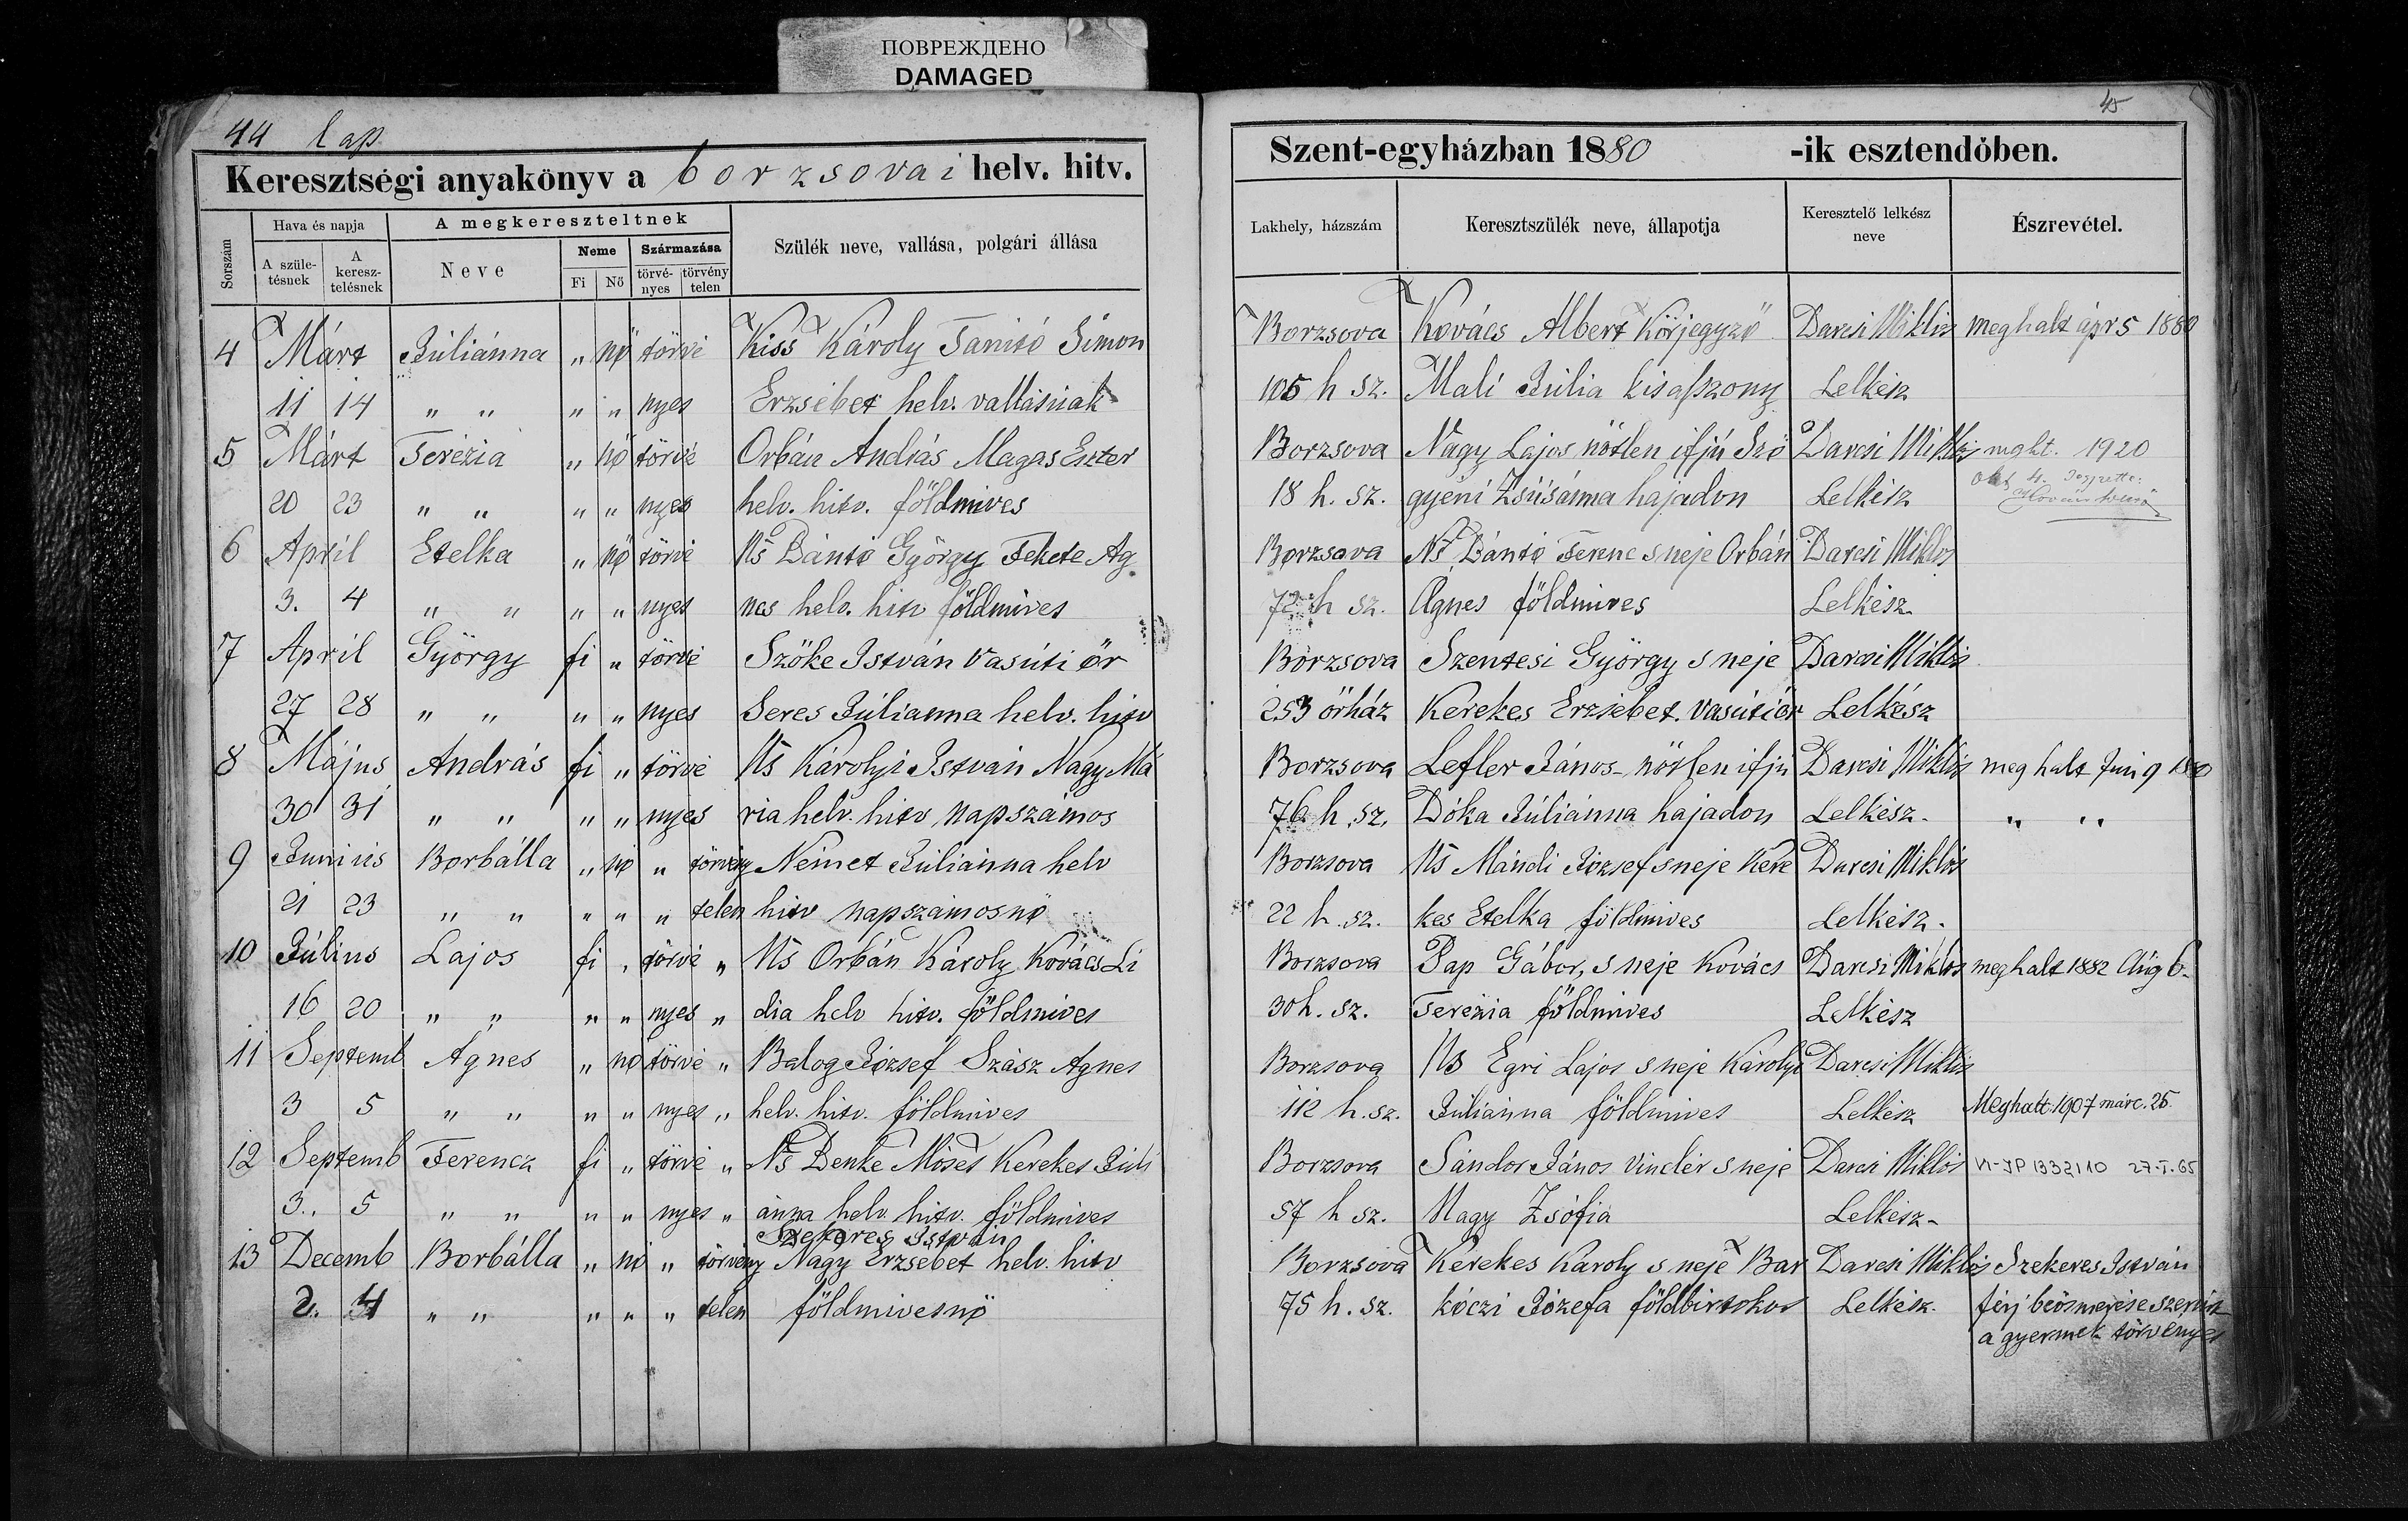 ПОВРЕЖДЕНО
DAMAGED
44 lap
Keresztségi anyakönyv a borzsovai helv. hitv.
Sorszám
Hava és napja
A születésnek
A keresztelésnek
A megkereszteltnek
Neve
Neme
Fi
Nő
Származása
törvényes
törvénytelen
Szülék neve, vallása, polgári állása
4 Márt Júliánna " nő törvé Kiss Károly Tanitó Simon
11 14 " " " " nyes Erzsébet helv. vallásuak
5 Márt Terézia " nő törvé Orbán András Magas Eszter
20 23 " " " " nyes helv. hitv. földmives
6 April Etelka " nő törvé Ns Dántó György Fekete Ág
3. 4 " " " " nyes nes helv. hitv földmives
7 April György fi " törvé Szőke István vasúti őr
27 28 " " " " nyes Seres Júlianna helv. hitv
8 Május András fi " törvé Ns Károlyi István Nagy Má
30 31 " " " " nyes ria helv. hitv napszámos
9 Junius Borbálla " nő " törvény Német Júliánna helv
21 23 " " " " " telen hitv napszámosnő
10 Július Lajos fi " törvé " Ns Orbán Károly Kovács Li
16 20 " " " " nyes " dia helv hitv. földmives
11 Septemb Ágnes " nő törvé " Balog József Szász Ágnes
3 5 " " " " nyes " helv. hitv. földmives
12 Septemb Ferencz fi " törvé " Ns Denke Móses Kerekes Júli
3. 5 " " " " nyes " ánna helv. hitv. földmives
Szekeres István
13 Decemb Borbálla " nő " törvény Nagy Erzsébet helv. hitv
2. 4 " " " " " telen földmivesnő
45
Szent-egyházban 1880 -ik esztendőben.
Lakhely, házszám
Keresztszülék neve, állapotja
Keresztelő lelkész neve
Észrevétel.
Borzsova Kovács Albert Körjegyző Darcsi Miklós meghalt ápr 5 1880
105 h sz. Mali Júlia kisasszony Lelkész
Borzsova Nagy Lajos nőtlen ifjú Szö Darcsi Miklós mght. 1920
18 h. sz. gyéni Zsúsánna hajadon Lelkész okt 4.
Borzsova Ns Dántó Ferenc s neje Orbán Darcsi Miklós
72 h sz. Ágnes földmives Lelkész
Borzsova Szentesi György s neje Darcsi Miklós
253 őrház Kerekes Erzsébet. vasúti őr Lelkész
Borzsova Lefler János nőtlen ifjú Darcsi Miklós meg halt Jun 9 1880
76 h. sz. Dóka Júliánna hajadon Lelkész. " "
Borzsova Ns Mándi József s neje Kere Darcsi Miklós
22 h. sz. kes Etelka földmives Lelkész.
Borzsova Pap Gábor, s neje Kovács Darcsi Miklós meghalt 1882 Aúg 6.
30 h. sz. Terézia földmives Lelkész
Borzsova Ns Egri Lajos s neje Károlyi Darcsi Miklós
112 h. sz. Júliánna földmives Lelkész Meghalt. 1907 márc. 25.
Borzsova Sándor János Vinclér s neje Darcsi Miklós VI-JP 1332110 27.I.65
57 h sz. Nagy Zsófia Lelkész.
Borzsova Kerekes Károly s neje Bar Darcsi Miklós Szekeres István
75 h. sz. kóczi Józefa földbirtokos Lelkész. férj beösmerése szerint
a gyermek törvényes